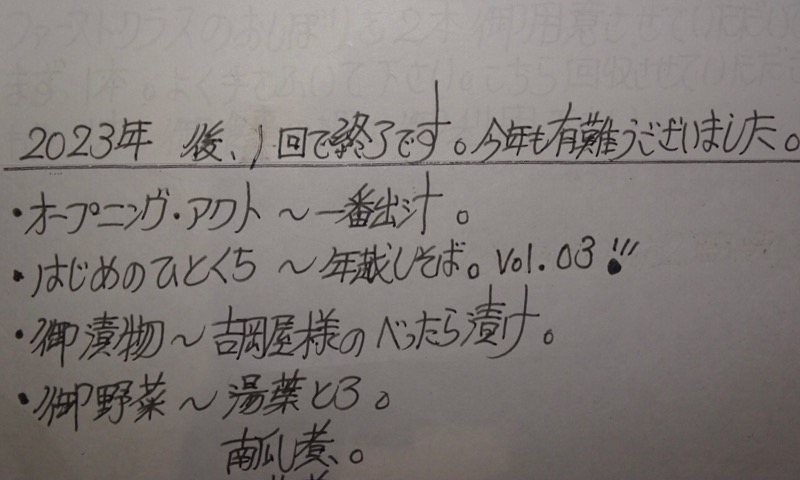 ファーストクラスのおしぼりを2本 御用意させていただい
まず、1本。よく手をふいて下さい。こちら回収させていただき
2023年 後、1回で終了です。今年も有難うございました。
・オープニング・アクト 〜 一番出汁。
・はじめのひとくち 〜 年越しそば。Vol.03!!!
・御漬物 〜 吉岡屋様のべったら漬け。
・御野菜 〜 湯葉とろ。
南瓜煮、。